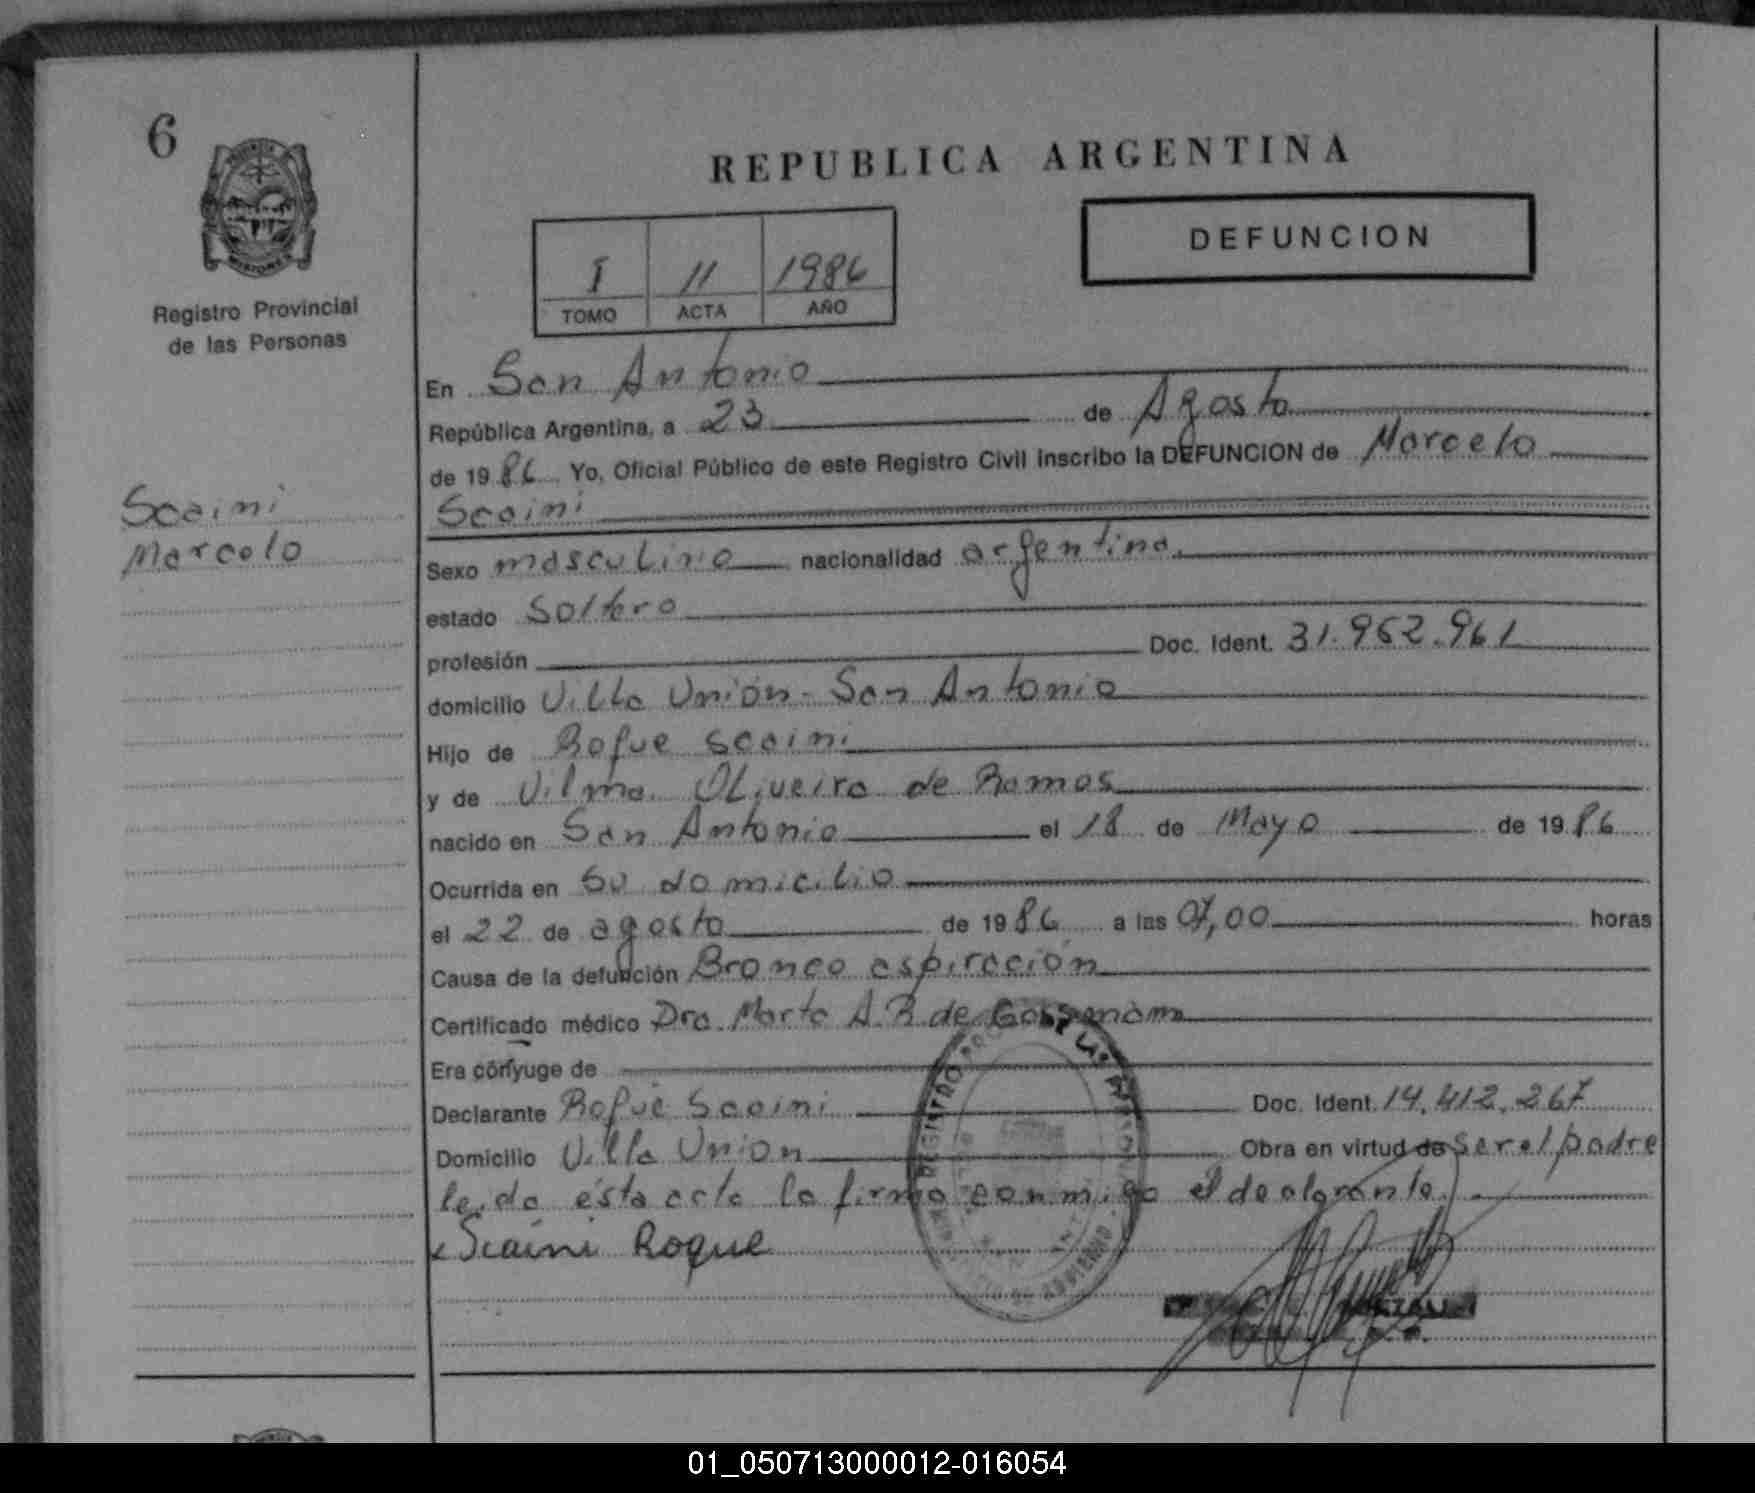 6
REPUBLICA ARGENTINA
DEFUNCION
I 11 1986
TOMO ACTA AÑO
MISIONES
Registro Provincial
de las Personas
Scaini
Marcelo
En San Antonio
República Argentina, a 23 de Agosto
de 1986 Yo, Oficial Público de este Registro Civil inscribo la DEFUNCION de Marcelo
Scaini
Sexo masculino nacionalidad argentina
estado Soltero
profesión Doc. Ident. 31.962.961
domicilio Villa Unión - San Antonio
Hijo de Roque Scaini
y de Vilma Oliveira de Ramos
nacido en San Antonio el 18 de Mayo de 1986
Ocurrida en Su domicilio
el 22 de agosto de 1986 a las 07,00 horas
Causa de la defunción Bronco aspiración
Certificado médico Dra. Marta A. B. de
Era cónyuge de
Declarante Roque Scaini Doc. Ident. 14.412.267
Domicilio Villa Unión Obra en virtud de Ser el padre
leida ésta acta la firma conmigo el dealgrante.
x Scaini Roque
01_050713000012-016054